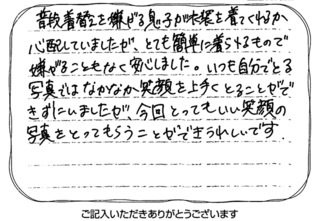 普段着替えを嫌がる息子が衣装を着てくれるか
心配していましたが、とても簡単に着られるもので
嫌がることもなく安心しました。いつも自分でとる
写真ではなかなか笑顔を上手くとることができ
きずにいましたが、今回とってもいい笑顔の
写真をとってもらうことができうれしいです.
ご記入いただきありがとうございます